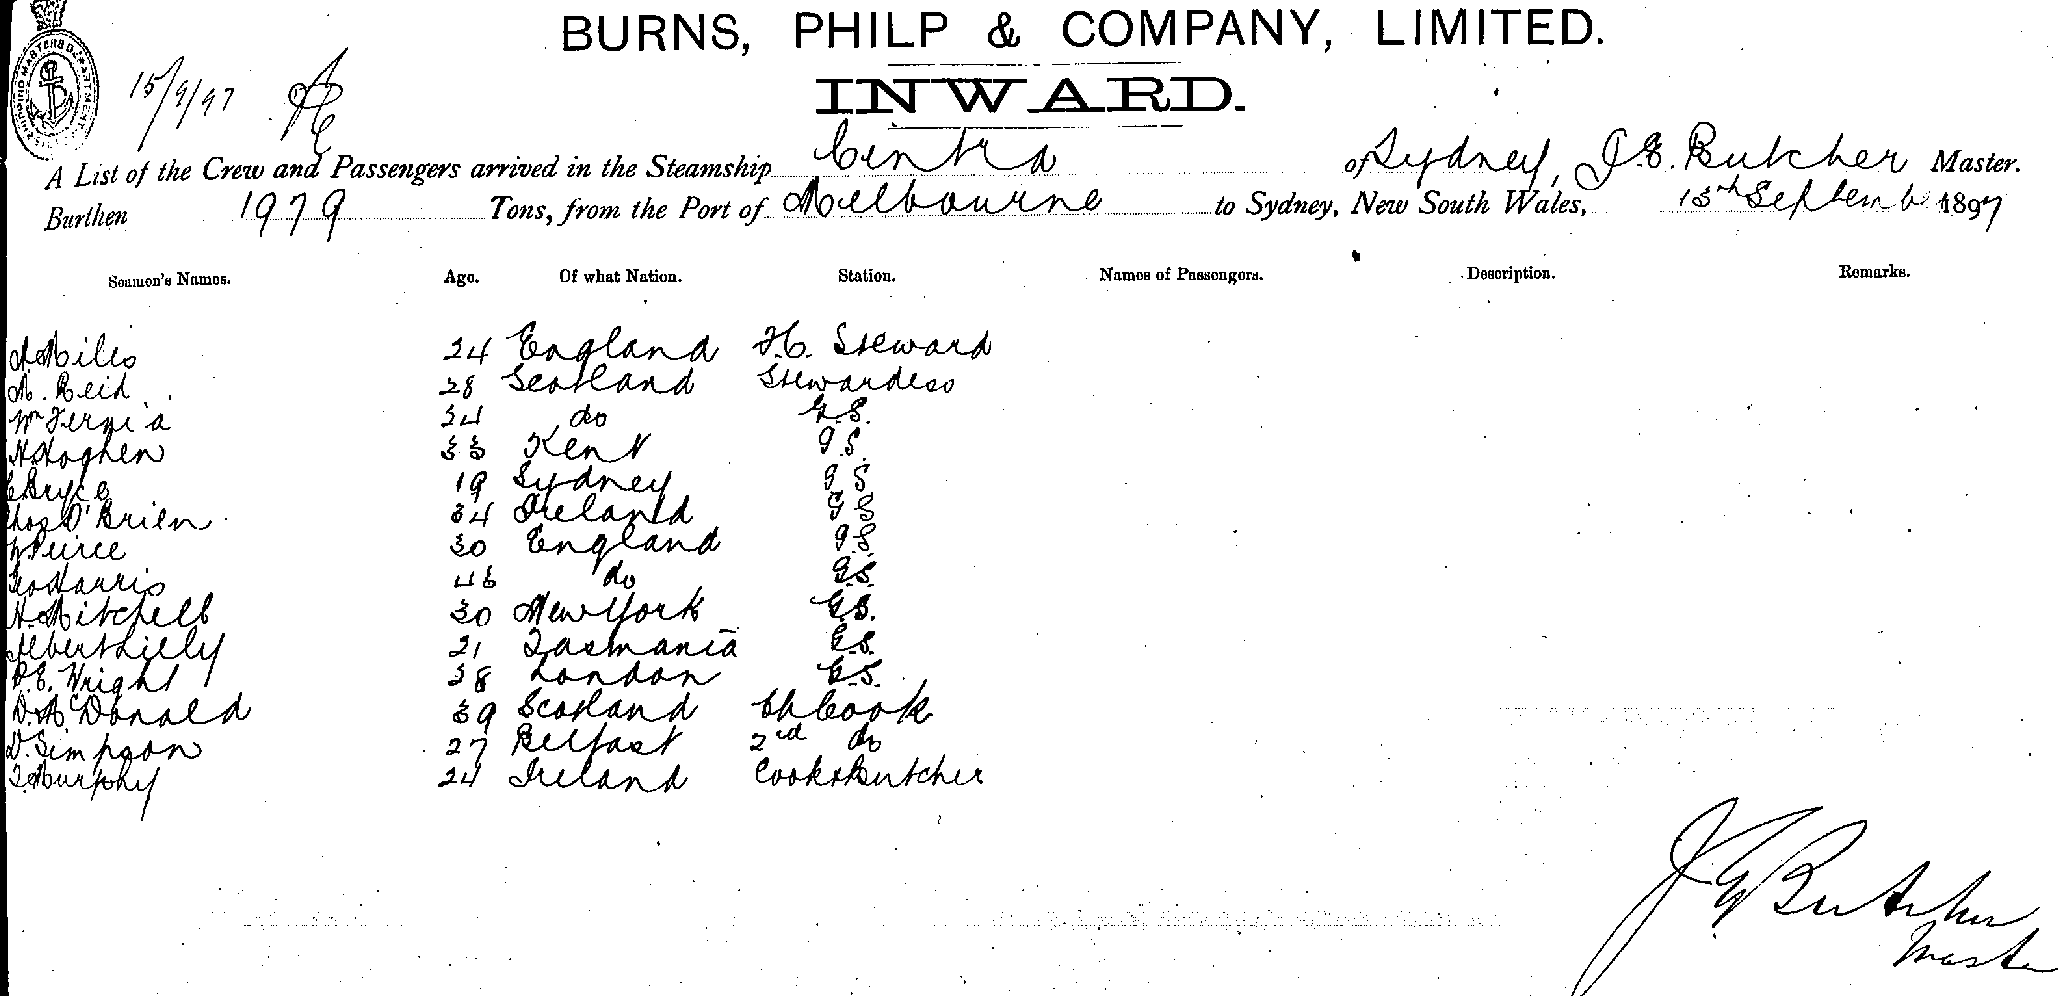 BURNS, PHILP & COMPANY, LIMITED.
INWARD.
15/9/97
A List of the Crew and Passengers arrived in the Steamship Cintra of Sydney, J.E. Butcher Master.
Burthen 1979 Tons, from the Port of Melbourne to Sydney, New South Wales, 15th Septemb 1897
Seamen's Names. Age. Of what Nation. Station. Names of Passengers. Description. Remarks.
A. Miles 24 England F.C. Steward
M. Reid 28 Scotland Stewardess
Wm 34 do G.S.
33 Kent G.S.
Bryce 19 Sydney G S
O'Brien 34 Ireland G S
Peirce 30 England G.S.
Geo Harris 46 do G.S.
H. Mitchell 30 New York G.S.
Albert Lilly 21 Tasmania G.S.
P.E. Wright 38 London G.S.
D. McDonald 39 Scotland Ch Cook
D. Simpson 27 Belfast 2nd do
T. Murphy 24 Ireland Cook & Butcher
J E Butcher
Master